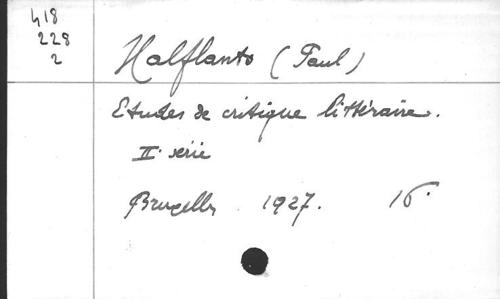 418
228
2
Halflants (Paul)
Etudes de critique littéraire.
II. série
Bruxelles. 1927. 16.